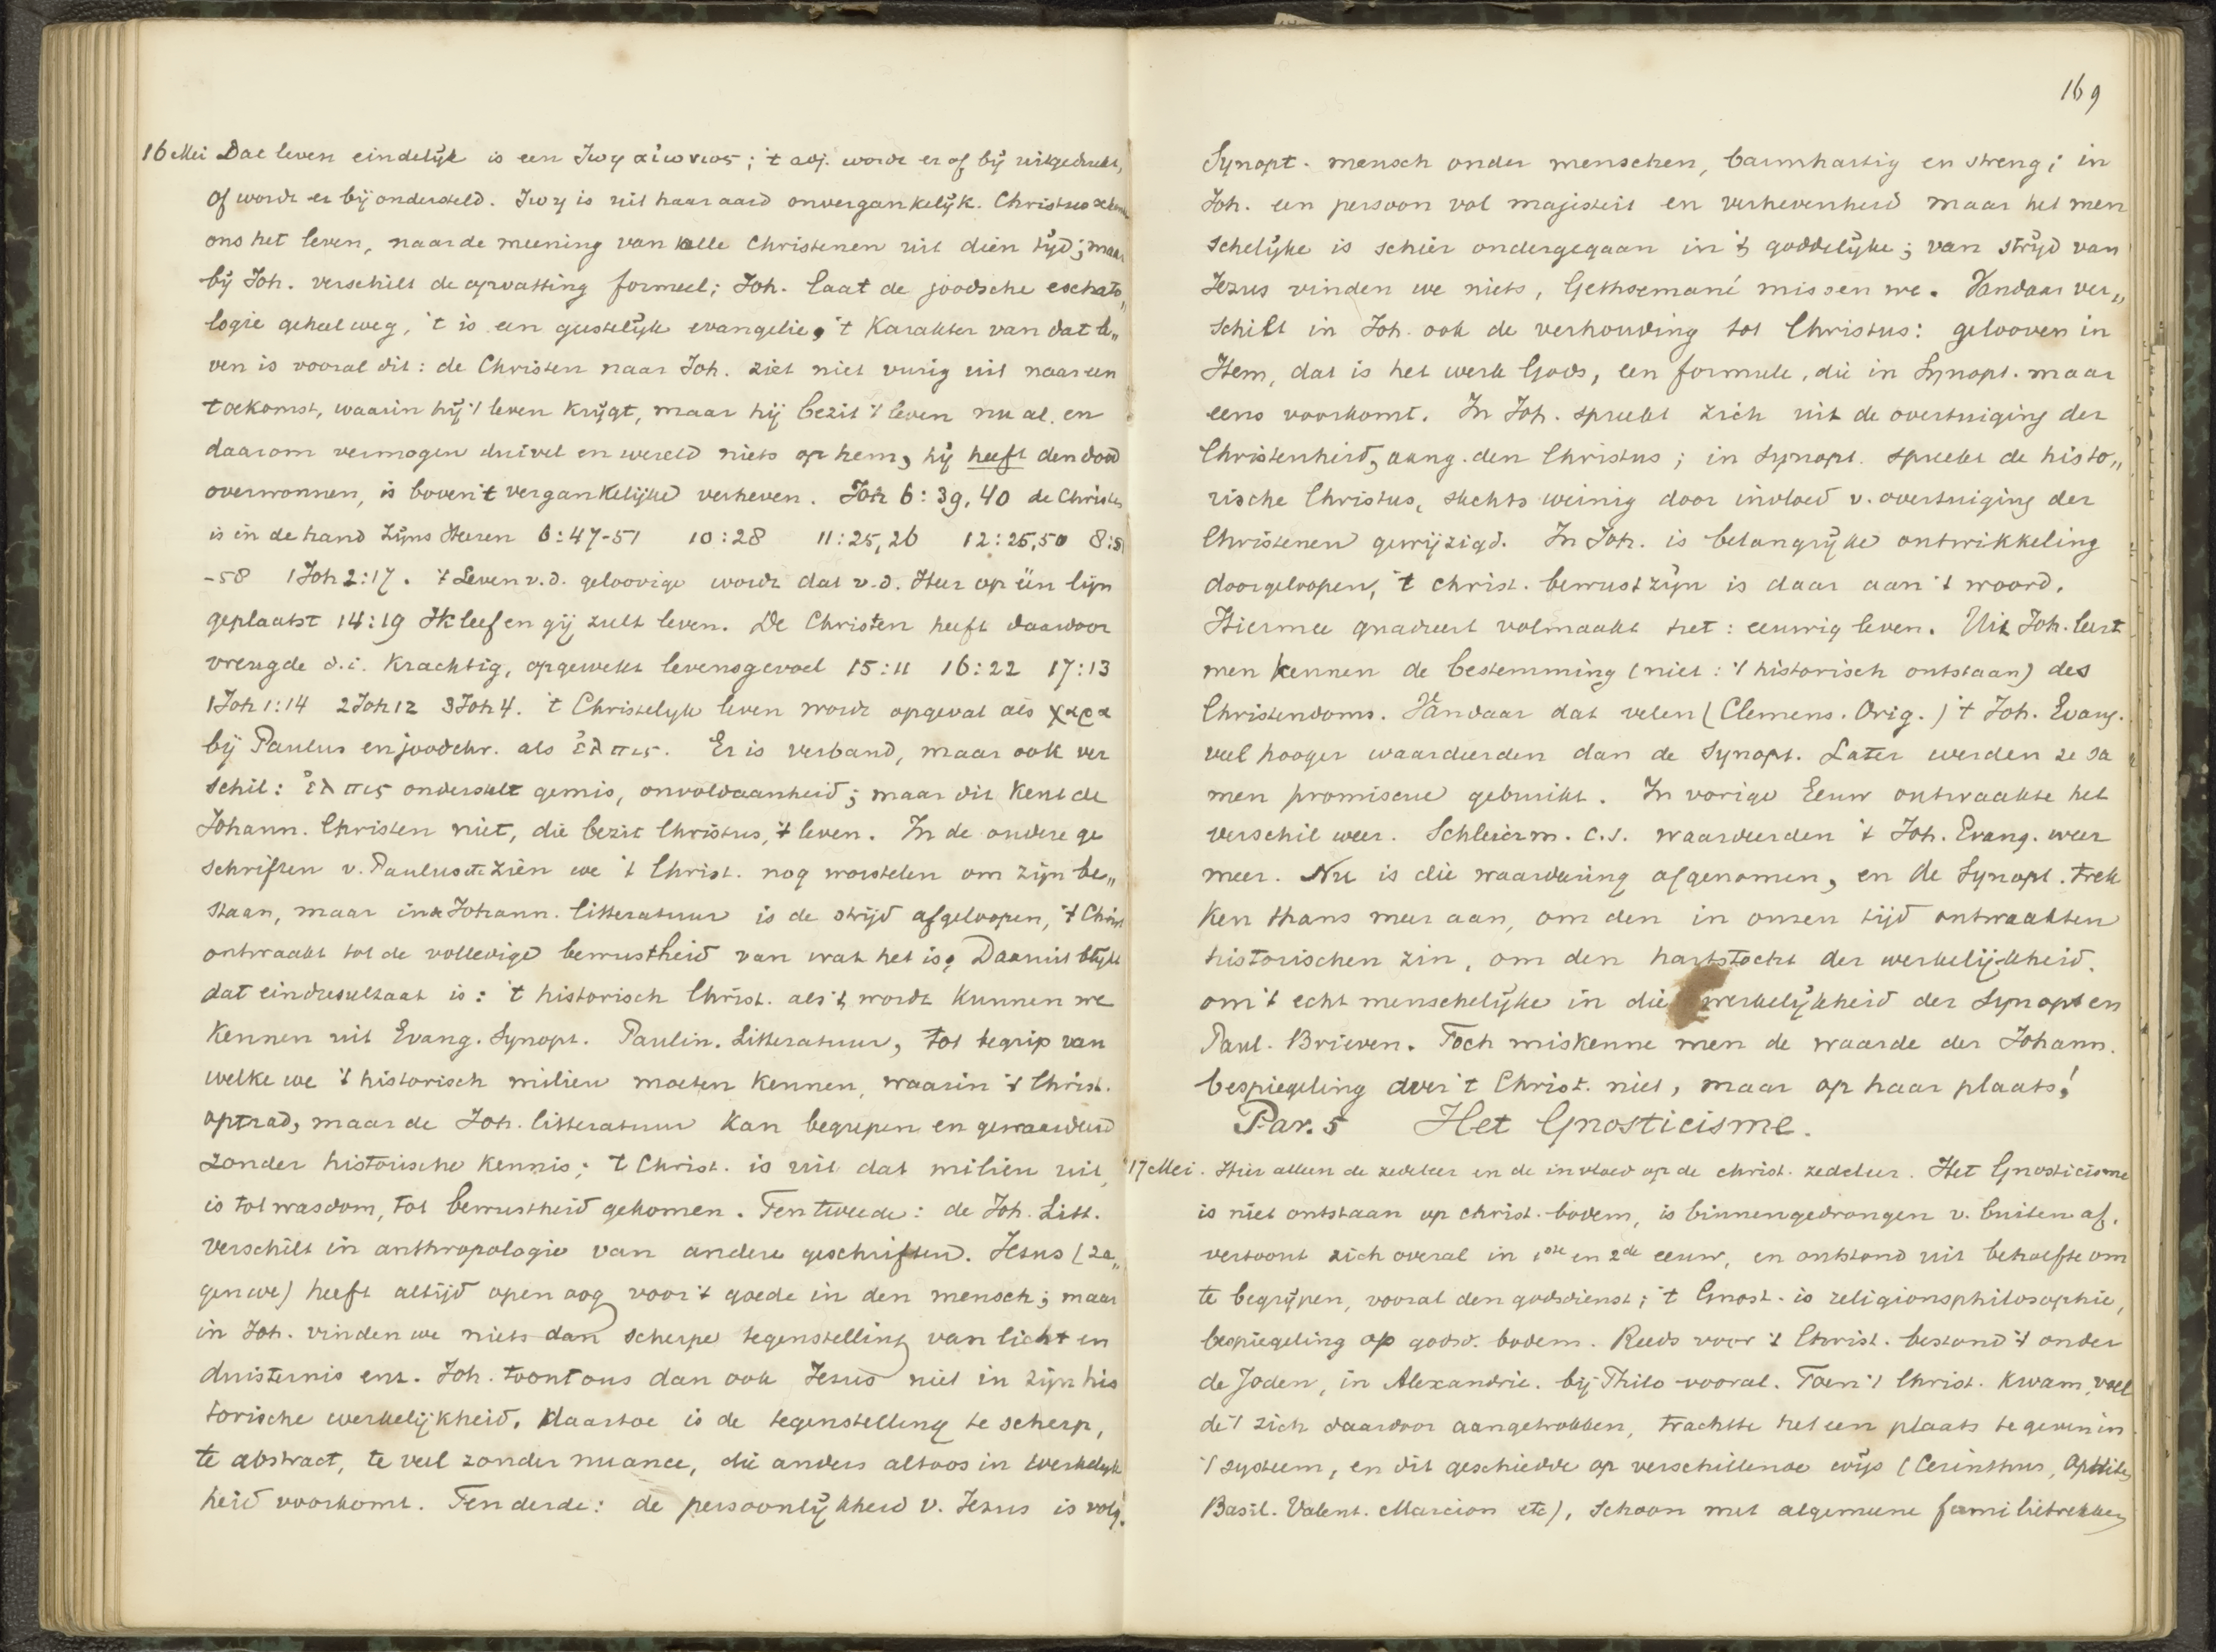 16 Mei Dat leven eindelijk is een ζωη αἰωνιος; 't adj. wordt er of bij uitgedrukt,
of wordt er bij ondersteld. ζωη is uit haar aard onvergankelijk. Christus schenkt
ons het leven, naar de meening van alle Christenen uit dien tijd; maar
bij Joh. verschilt de opvatting formeel; Joh. laat de joodsche eschato„
logie geheel weg, 't is een geestelijk evangelie, 't Karakter van dat le„
ven is vooral dit: de Christen naar Joh. ziet niet vurig uit naar een
toekomst, waarin hij 't leven krijgt, maar hij bezit 't leven nu al. en
daarom vermogen duivel en wereld niets op hem, hij heeft den dood
overwonnen, is boven 't vergankelijke verheven. Joh 6:39,40 de Christen
is in de hand zijns Heeren 6:47-51 10:28 11:25,26 12:25,50 8:51
-58 1 Joh 2:17. 't Leven v.d. geloovige wordt dat v.d. Heer op één lijn
geplaatst 14:19 Ik leef en gij zult leven. De Christen heeft daardoor
vreugde d.i. Krachtig, opgewekt levensgevoel 15:11 16:22 17:13
1 Joh 1:14 2 Joh 12 3 Joh 4. 't Christelijk leven wordt opgevat als χαρα
bij Paulus en joodchr. als ἐλπις. Er is verband, maar ook ver
schil: ἐλπις onderstelt gemis, onvoldaanheid; maar dit Kent de
Johann. Christen niet, die bezit Christus, 't leven. In de andere ge
schriften v. Paulus etc zien we 't Christ. nog worstelen om zijn be„
staan, maar in de Johann. litteratuur is de strijd afgeloopen, 't Christ
ontwaakt tot de volledige bewustheid van wat het is, Daaruit blijkt
dat eindresultaat is: 't historisch Christ. als 't wordt Kunnen we
Kennen uit Evang. Synopt. Paulin. Litteratuur, tot begrip van
welke we 't historisch milieu moeten Kennen, waarin 't Christ.
optrad, maar de Joh. litteratuur Kan begrepen en gewaardeerd
zonder historische Kennis; 't Christ. is uit dat milieu uit,
is tot wasdom, tot bewustheid gekomen. Ten tweede: de Joh. Litt.
verschilt in anthropologie van andere geschriften. Jezus (za„
gen we) heeft altijd open oog voor 't goede in den mensch; maar
in Joh. vinden we niets dan scherpe tegenstelling van licht en
duisternis enz. Joh. toont ons dan ook Jezus niet in zijn his
torische werkelijkheid. daartoe is de tegenstelling te scherp,
te abstract, te veel zonder nuance, die anders altoos in werkelijk
heid voorkomt. Ten derde: de persoonlijkheid v. Jezus is volg.
169
Synopt. mensch onder menschen, barmhartig en streng; in
Joh. een persoon vol majesteit en verhevenheid maar het men
schelijke is schier ondergegaan in 't goddelijke; van strijd van
Jezus vinden we niets, Gethsemané missen we. Vandaar ver„
schilt in Joh. ook de verhouding tot Christus: gelooven in
Hem, dat is het werk Gods, een formule, die in Synopt. maar
eens voorkomt. In Joh. spreekt zich uit de overtuiging der
Christenheid, aang. den Christus; in Synopt. spreekt de histo„
rische Christus, slechts weinig door invloed v. overtuiging der
Christenen gewijzigd. In Joh. is belangrijke ontwikkeling
doorgeloopen, 't christ. bewustzijn is daar aan 't woord.
Hiermee quadreert volmaakt het: eeuwig leven. Uit Joh. leert
men kennen de bestemming (niet: 't historisch ontstaan) des
Christendoms. Vandaar dat velen (Clemens. Orig.) 't Joh. Evang.
veel hooger waardeerden dan de Synopt. Later werden ze sa
men promiscue gebruikt. In vorige Eeuw ontwaakte het
verschil weer. Schleierm. c.s. waardeerden 't Joh. Evang. weer
meer. Nu is die waardeering afgenomen, en de Synopt. trek
Ken thans meer aan, om den in onzen tijd ontwaakten
historischen zin, om den hartstocht der werkelijkheid.
om 't echt menschelijke in die werkelijkheid der Synopt en
Paul. Brieven. Toch miskenne men de waarde der Johann.
bespiegeling over 't Christ. niet, maar op haar plaats!
Par. 5 Het Gnosticisme.
17 Mei. Hier alleen de zedeleer en de invloed op de christ. zedeleer. Het Gnosticisme
is niet ontstaan op christ. bodem, is binnengedrongen v. buiten af.
vertoont zich overal in 1ste en 2de eeuw, en ontstond uit behoefte om
te begrijpen, vooral den godsdienst; 't Gnost. is religionsphilosophie,
bespiegeling op godsd. bodem. Reeds voor 't Christ. bestond 't onder
de Joden, in Alexandrie. bij Philo vooral. Toen 't Christ. Kwam, voel
de 't zich daardoor aangetrokken, trachtte het een plaats te geven in
't systeem, en dit geschiedde op verschillende wijs (Cerinthus, Ophites
Basil. Valent. Marcion etc), schoon met algemeene familietrekken